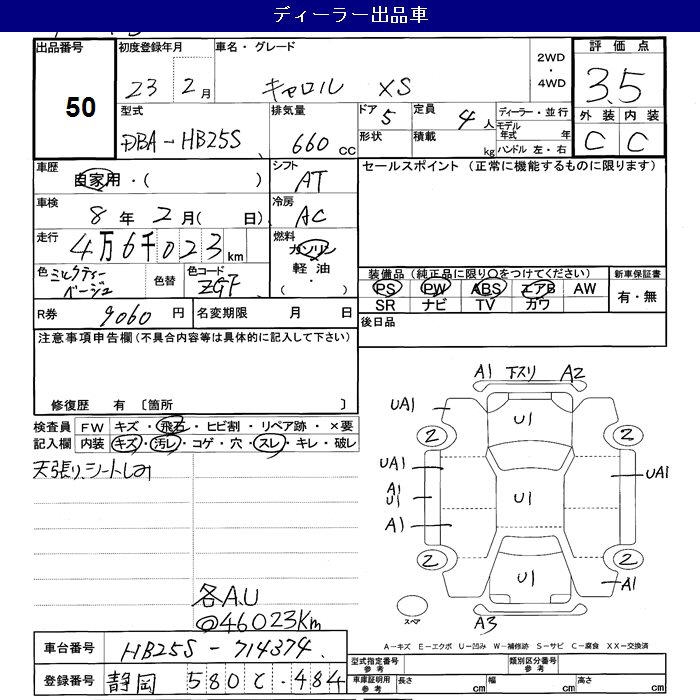 ディーラー出品車
出品番号
50
初度登録年月
23 2月
車名・グレード
キャロル XS
2WD・4WD
評価点
3.5
外装 内装
C C
型式
DBA-HB25S
排気量
660 cc
ドア 5
形状
定員 4人
積載 kg
ディーラー・並行
モデル年式 年
ハンドル 左・右
車歴
自家用・( )
シフト
AT
セールスポイント (正常に機能するものに限ります)
車検
8年 2月( 日)
冷房
AC
走行
4万6千023km
燃料
ガソリン
軽油
( ・ )
色 ミルクティーベージュ
色替
色コード
ZGF
装備品(純正品に限り○をつけてください)
PS PW ABS エアB AW
SR ナビ TV カワ
新車保証書
有・無
R券 9060円
名変期限 月 日
後日品
注意事項申告欄(不具合内容等は具体的に記入して下さい)
修復歴 有 〔箇所 〕
検査員記入欄
FW キズ・飛石・ヒビ割・リペア跡・×要
内装 キズ・汚レ・コゲ・穴・スレ・キレ・破レ
天張り、シートしみ
各A.U
@46023Km
A1 下スリ A2
UA1
U1
2 2
UA1
UA1
A1
U1
U1
A1
2 2
U1
A1
スペア
A3
A-キズ E-エクボ U-凹み W-補修跡 S-サビ C-腐食 XX-交換済
車台番号 HB25S-714374
登録番号 静岡 580 て・484
型式指定番号 参考
類別区分番号 参考
車庫証明用 参考
長さ cm 幅 cm 高さ cm